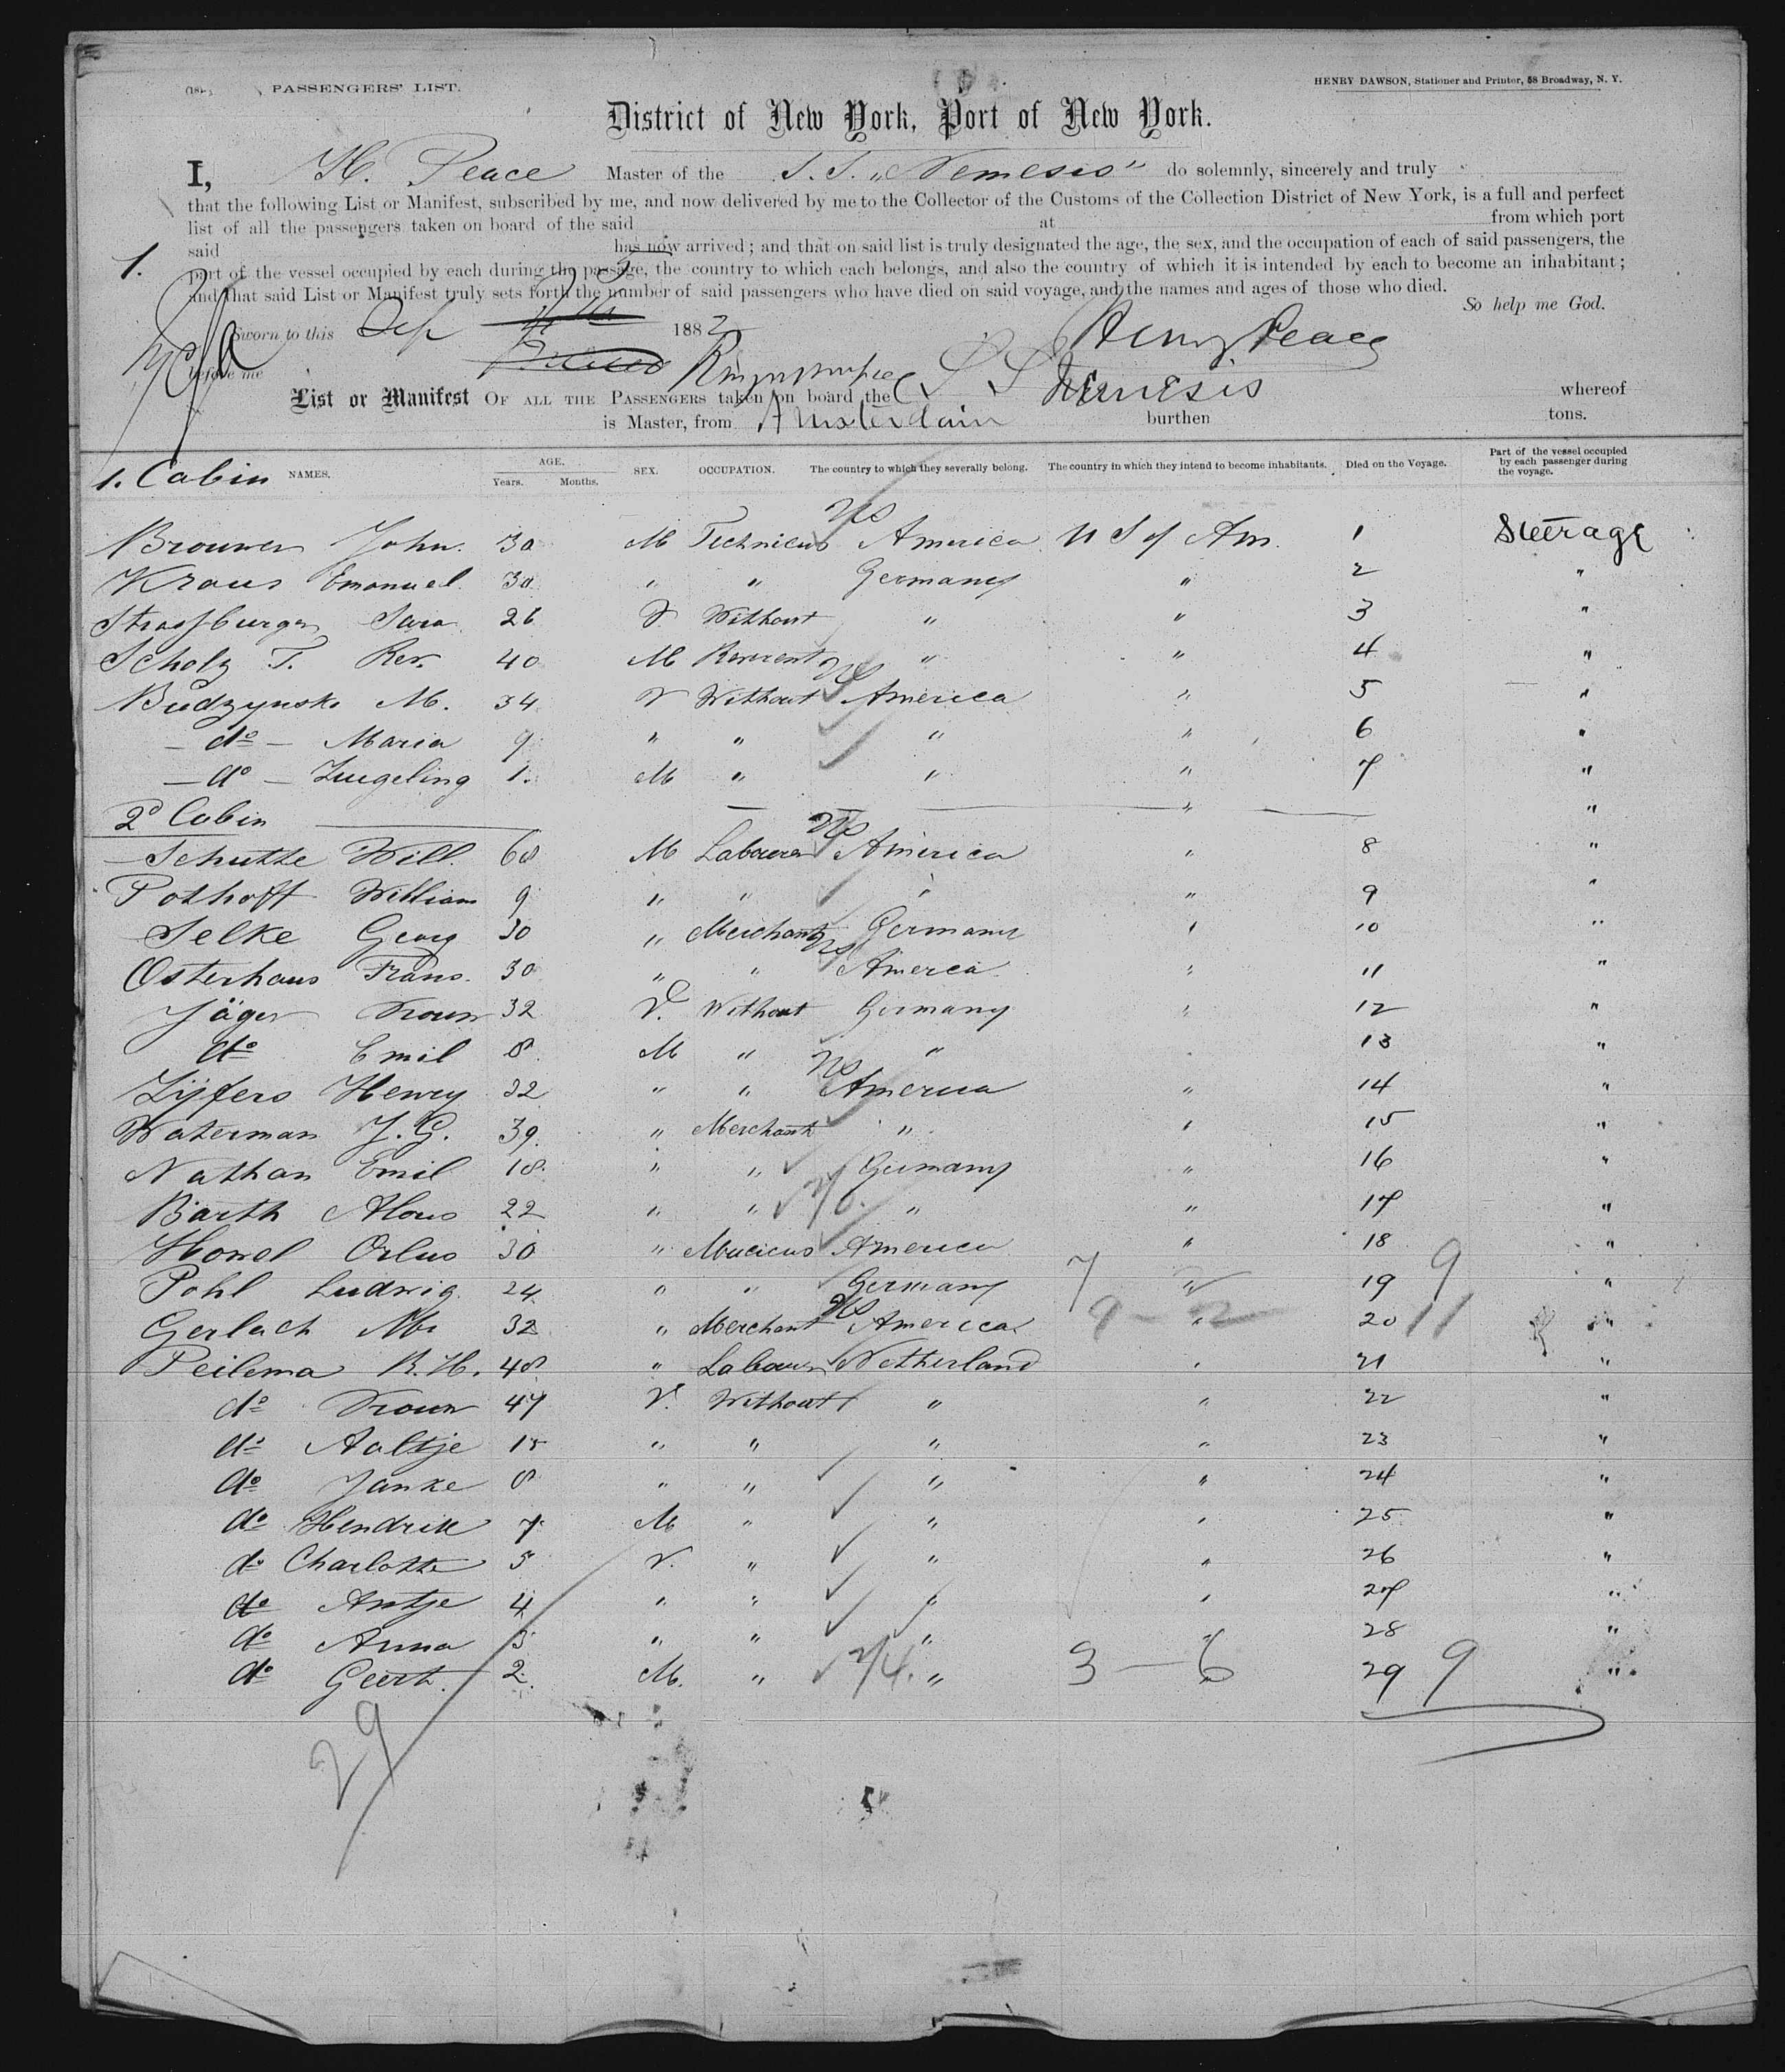 PASSENGERS' LIST.
HENRY DAWSON, Stationer and Printer, 58 Broadway, N. Y.
District of New York, Port of New York.
I, H. Peace Master of the S. S. „Nemesis" do solemnly, sincerely and truly
that the following List or Manifest, subscribed by me, and now delivered by me to the Collector of the Customs of the Collection District of New York, is a full and perfect
list of all the passengers taken on board of the said at from which port
said has now arrived; and that on said list is truly designated the age, the sex, and the occupation of each of said passengers, the
1.
part of the vessel occupied by each during the passage, the country to which each belongs, and also the country of which it is intended by each to become an inhabitant;
and that said List or Manifest truly sets forth the number of said passengers who have died on said voyage, and the names and ages of those who died.
So help me God.
Sworn to this Sep 1882 Henry Peace
before me
List or Manifest OF ALL THE PASSENGERS taken on board the S S Nemesis whereof
is Master, from Amsterdam burthen tons.
1. Cabin NAMES. AGE. Years. Months. SEX. OCCUPATION. The country to which they severally belong. The country in which they intend to become inhabitants. Died on the Voyage. Part of the vessel occupied by each passenger during the voyage.
Brouwer John. 30 M Technicus US America U S of Am. 1 Steerage
Kraus Emanuel 30 " " Germany " 2 "
Strassburger Sara 26 V Without " " 3 "
Scholz T. Rev. 40 M " " 4 "
Budzynski M. 34 V Without US America " 5 "
do Maria 9 " " " " 6 "
do 1. M " " " 7 "
2d Cabin " "
Schutte Will. 60 M Labourer US America " 8 "
Pothoff William 9 " " " " 9 "
Selke Georg 30 " Merchant Germany " 10 "
Osterhaus Frans. 30 " " US America " 11 "
Jäger Vrouw 32 V. Without Germany " 12 "
do Emil 8 M " " 13 "
Zijfers Henry 32 " " US America " 14 "
Waterman J. G. 39. " Merchant " " 15 "
Nathan Emil 18. " " Germany " 16 "
Barth Alois 22 " " " " 17 "
Howel 30 " Mucicus America " 18 "
Pohl Ludwig 24 " " Germany 7 " 19 9 "
Gerlach Mr 32 " Merchant US America 9 - 2 " 20 11 "
Peilema R. H. 48 " Labourer Netherland " 21 "
do Vrouw 47 V. Without " " 22 "
do Aaltje 15 " " " " 23 "
do Janke 8 " " " " 24 "
do Hendrik 7 M " " " 25 "
do Charlotte 5 V. " " " 26 "
do Antje 4 " " " " 27 "
do Anna 3 " " " " 28 "
do Geert. 2. M. " 2/4. " 3 - 6 29 9 "
29